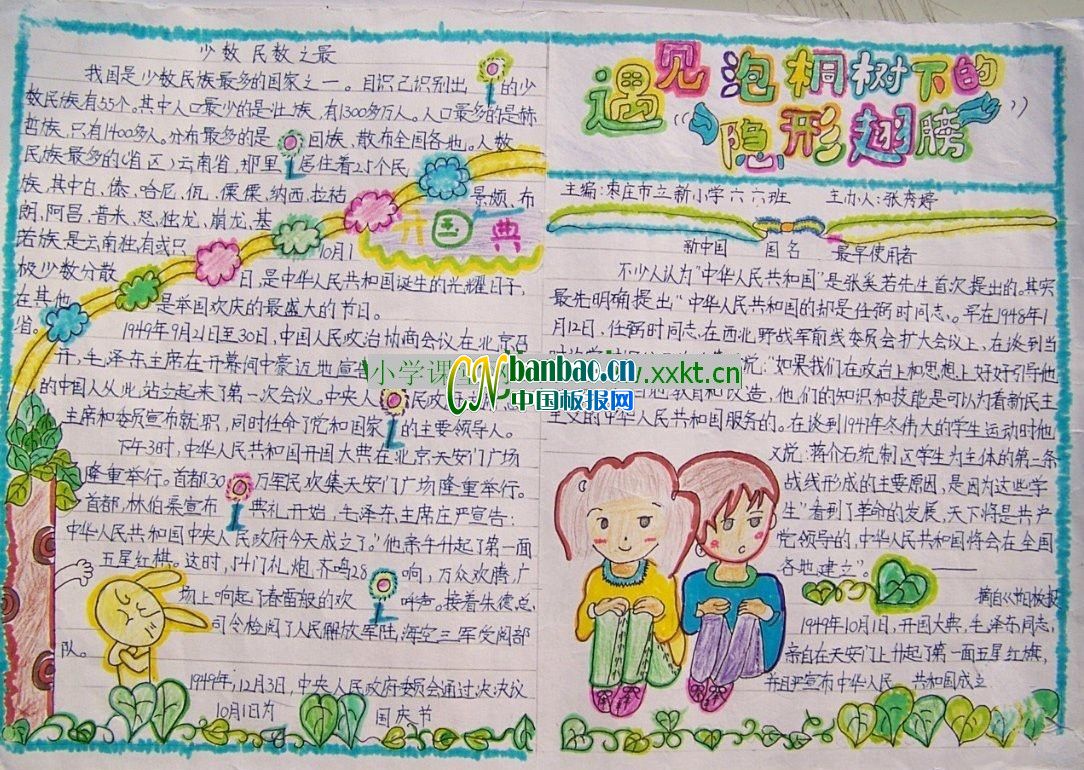 少数民数之最
我国是少数民族最多的国家之一。目识已识别出的少
数民族有55个。其中人口最少的是壮族，有1300多万人。人口最多的是赫
哲族，只有1400多人。分布最多的是回族，散布全国各地。人数
民族最多的(省区)云南省，那里居住着25个民
族，其中白、傣、哈尼、佤、傈僳、纳西、拉祜
景颇、布
朗、阿昌、普米、怒、独龙、崩龙、基
诺族是云南独有或只
极少数分散
在其他
省。
开国典
10月1
日，是中华人民共和国诞生的光耀日子，
是举国欢庆的最盛大的节日。
1949年9月21日至30日，中国人民政治协商会议在北京召
开，毛泽东主席在开幕间中豪迈地宣
的中国人从此站立起来了第一次会议。中央人民政
主席和委员宣布就职，同时任命了党和国家的主要领导人。
下午3时，中华人民共和国开国大典在北京天安门广场
隆重举行。首都30万军民欢集天安门广场隆重举行。
首都，林伯渠宣布典礼开始，毛泽东主席庄严宣告：
中华人民共和国中央人民政府今天成立了。"他亲手升起了第一面
五星红棋。这时，54门礼炮齐鸣28响，万众欢腾，广
场上响起了春雷般的欢呼声。接着朱德总
司令检阅了人民解放军陆、海空三军受阅部
队。
1949年，12月3日，中央人民政府委员会通过决决议
10月1日为国庆节
遇见泡桐树下的
隐形翅膀
主编：枣庄市立新小学六六班 主办人：张秀婷
新中国国名最早使用者
不少人认为"中华人民共和国"是张奚若先生首次提出的。其实
最先明确提出"中华人民共和国的却是任弼时同志、。早在1948年1
月12日，任弼时同志、在西北野战军前线委员会扩大会议上，在谈到当
说："如果我们在政治上和思想上好好引导他
教育和改造，他们的知识和技能是可以为看新民主
主义的中华人民共和国服务的。在谈到1947年冬伟大的学生运动时他
又说：蒋介石统制区学生为主体的第二条
战线形成的主要原因，是因为这些学
生"看到了革命的发展，天下将是共产
党领导的，中华人民共和国将会在全国
各地建立"。
1949年10月1日，开国大典，毛泽东同志，
亲自在天安门上升起了第一面五星红旗，
并且严宣布中华人民共和国成立
小学课
www.xxkt.cn
CN banbao.cn
中国板报网